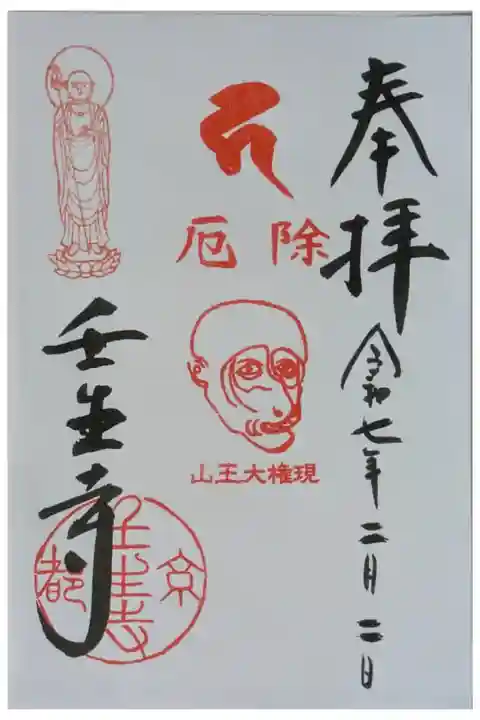 奉拝
令和七年二月二日
除厄
山王大権現
壬生寺
京都
壬生寺